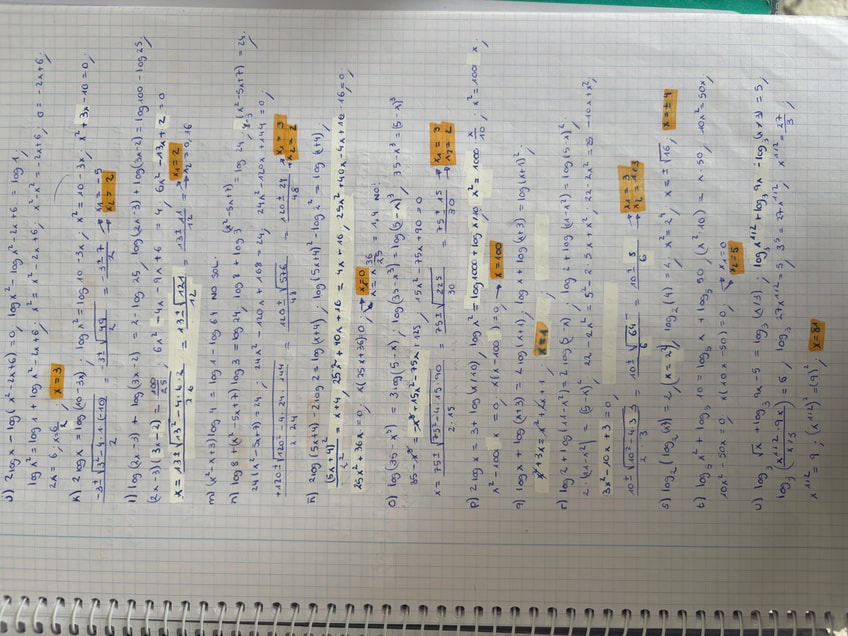 j) 2log x - log(x²-2x+6) = 0, log x² - log x²-2x+6 = log 1,
log x² = log 1 + log x²-2x+6; x² = x²-2x+6, x²-x² = -2x+6, 0 = -2x+6.
2x = 6, x = 6/2 x = 3
k) 2log x = log(10-3x); log x² = log 10-3x, x² = 10-3x, x²+3x-10 = 0,
-3±√3²-4·1·(-10) / 2 = -3±√49 / 2 = -3±7 / 2 x₁ = -5 x₂ = 2
l) log(2x-3) + log(3x-2) = 2 - log 25, log(2x-3) + log(3x-2) = log 100 - log 25,
(2x-3)(3x-2) = 100/25, 6x²-4x-9x+6 = 4, 6x²-13x+2 = 0
x = 13±√13²-4·6·2 / 2·6 = 13±√121 / 12 = 13±11 / 12 x₁ = 2 x₂ = 0,16
m) (x²-x+3) log 4 = log 1 - log 64 NO SOL.
n) log 8 + (x²-5x+7) log 3 = log 24, log 8 + log 3 (x²-5x+7) = log 24, 8·3 (x²-5x+7) = 24,
24(x²-5x+7) = 24; 24x²-120x+168 = 24, 24x²-120x+144 = 0,
+120±√120²-4·24·144 / 2·24 = 120±√576 / 48 = 120±24 / 48 x₁ = 3 x₂ = 2
ñ) 2log(5x+4) - 2log 2 = log(x+4), log(5x+4)² - log 2² = log(x+4),
(5x+4)² / 2² = x+4, 25x²+40x+16 = 4x+16, 25x²+40x-4x+16-16 = 0,
25x²+36x = 0, x(25x+36)0, x = 0
o) log(35-x³) = 3log(5-x), log(35-x³) = log(5-x)³, 35-x³ = (5-x)³
35-x³ = -x³+15x²-75x+125, 15x²-75x+90 = 0
x = 75±√75²-4·15·90 / 2·15 = 75±√225 / 30 = 75±15 / 30 x₁ = 3 x₂ = 2
p) 2log x = 3 + log(x/10), log x² = log 1000 + log x/10 x² = 1000 x/10; x² = 100 x
x²-100x = 0, x(x-100) = 0 x = 100
q) log x + log(x+3) = 2log(x+1), log x + log(x+3) = log(x+1)²,
x²+3x = x²+2x+1, x = 1
r) log 2 + log(11-x²) = 2log(5-x), log 2 + log(11-x²) = log(5-x)²,
2·(11-x²) = (5-x)², 22-2x² = 5²-2·5·x+x², 22-2x² = 25-10x+x²,
3x²-10x+3 = 0
10±√10²-4·3·3 / 2·3 = 10±√64 / 6 = 10±8 / 6 x₁ = 3 x₂ = 1/3
s) log₂(log₂(x²)) = 2, (x = 2⁴) log₂(4) = 2; x² = 2⁴, x = ±√16, x = ±4
t) log₅x² + log₅10 = log₅x + log₅50, (x²·10) = x·50, 10x² = 50x,
10x²-50x = 0; x(10x-50) = 0 x₁ = 0 x₂ = 5
u) log₃√x + log₃9x - 5 = log₃(x/3); log₃x^1/2 + log₃9x - log₃(x/3) = 5,
log₃(x^1/2·9x / x/3) = 5, log₃27x^1/2 = 5, 3⁵ = 27x^1/2, x^1/2 =
x^1/2 = 9; (x^1/2)² = (9)², x = 81